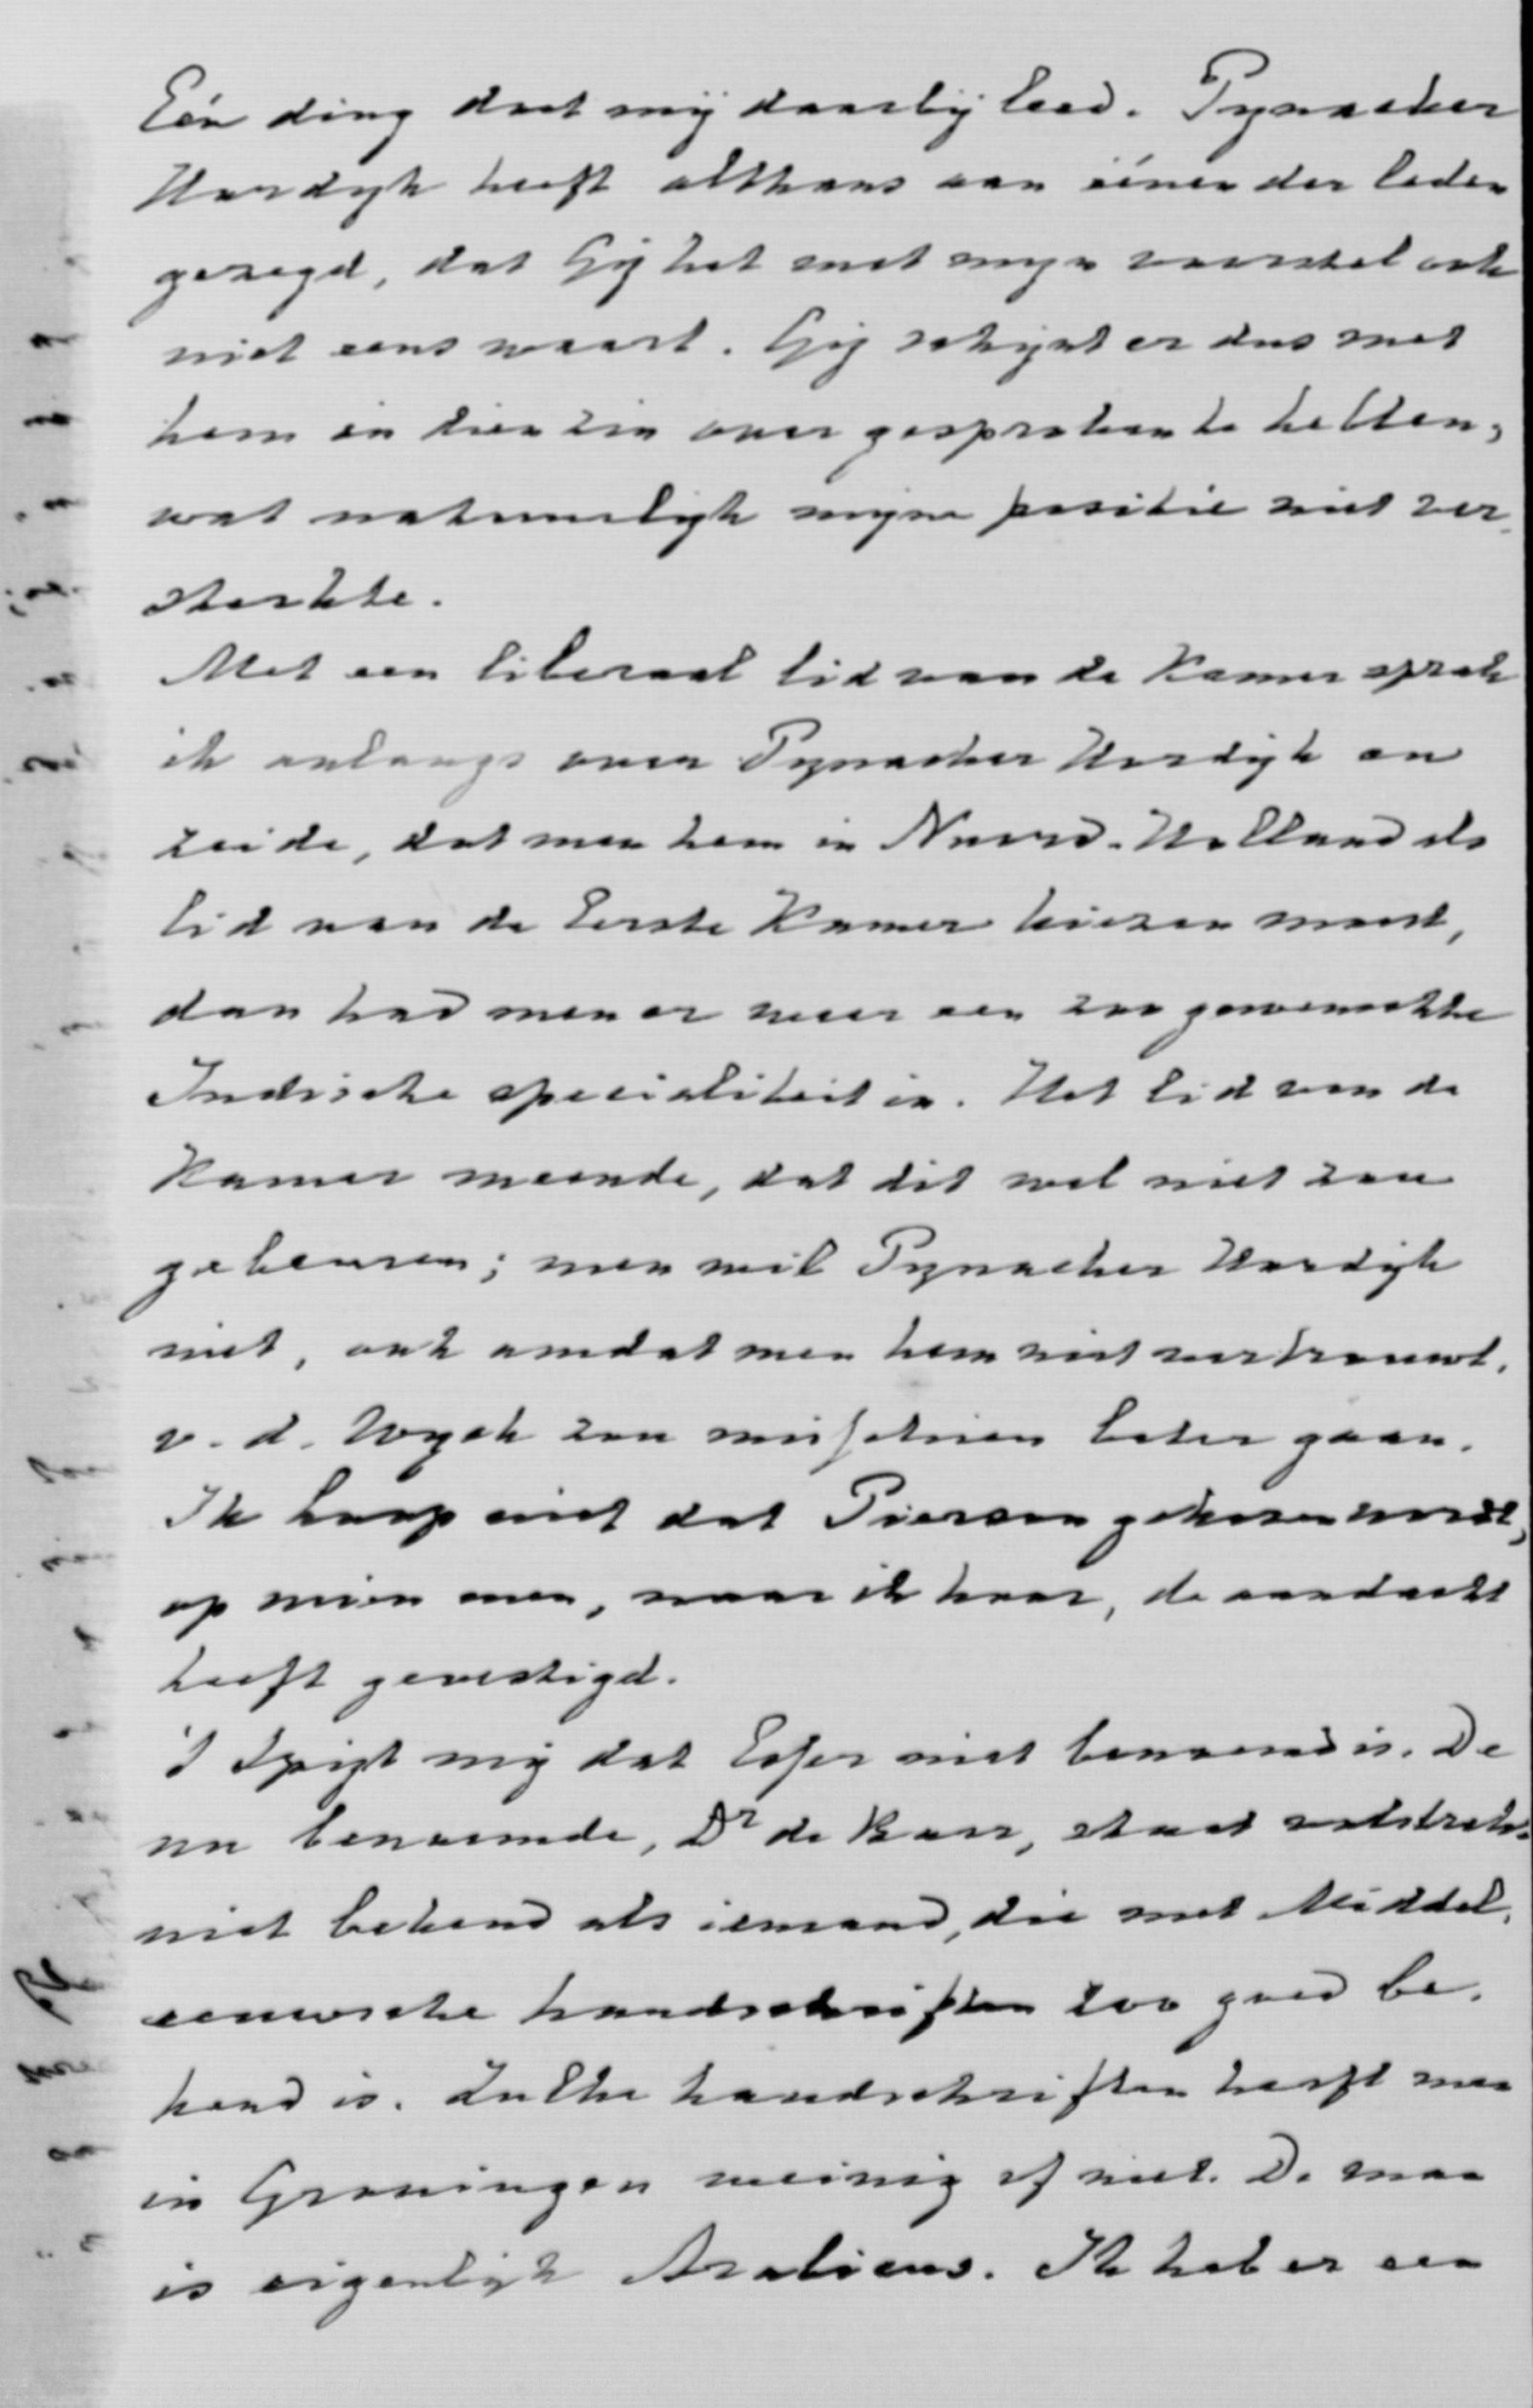 Eén ding doet mij daarbij leed. Pynacker
Hordyk heeft althans aan éénen der leden
gezegd, dat Gij het met myn voorstel ook
niet eens waart. Gij schynt er dus met
hem in dien zin over gesproken te hebben,
wat natuurlijk myne positie niet ver-
sterkte.
Met een liberaal lid van de Kamer sprak
ik onlangs over Pynacker Hordijk en
zeide, dat men hem in Noord-Holland als
lid van de Eerste Kamer kiezen moest,
dan had men er weer een zoo gewenschte
Indische specialiteit in. Het lid van de
Kamer meende, dat dit wel niet zou
gebeuren; men wil Pynacker Hordijk
niet, ook omdat men hem niet vertrouwt.
v. d. Wyck zou misschien beter gaan.
Ik hoop niet dat Pierson gekozen wordt,
op wien men, naar ik hoor, de aandacht
heeft gevestigd.
't Spijt mij dat Esser niet benoemd is. De
nu benoemde, Dr de Boer, staat volstrekt
niet bekend als iemand, die met Middel-
eeuwsche handschriften zoo goed be-
kend is. Zulke handschriften heeft men
in Groningen weinig of niet. De man
is eigenlijk Arabicus. Ik heb er een